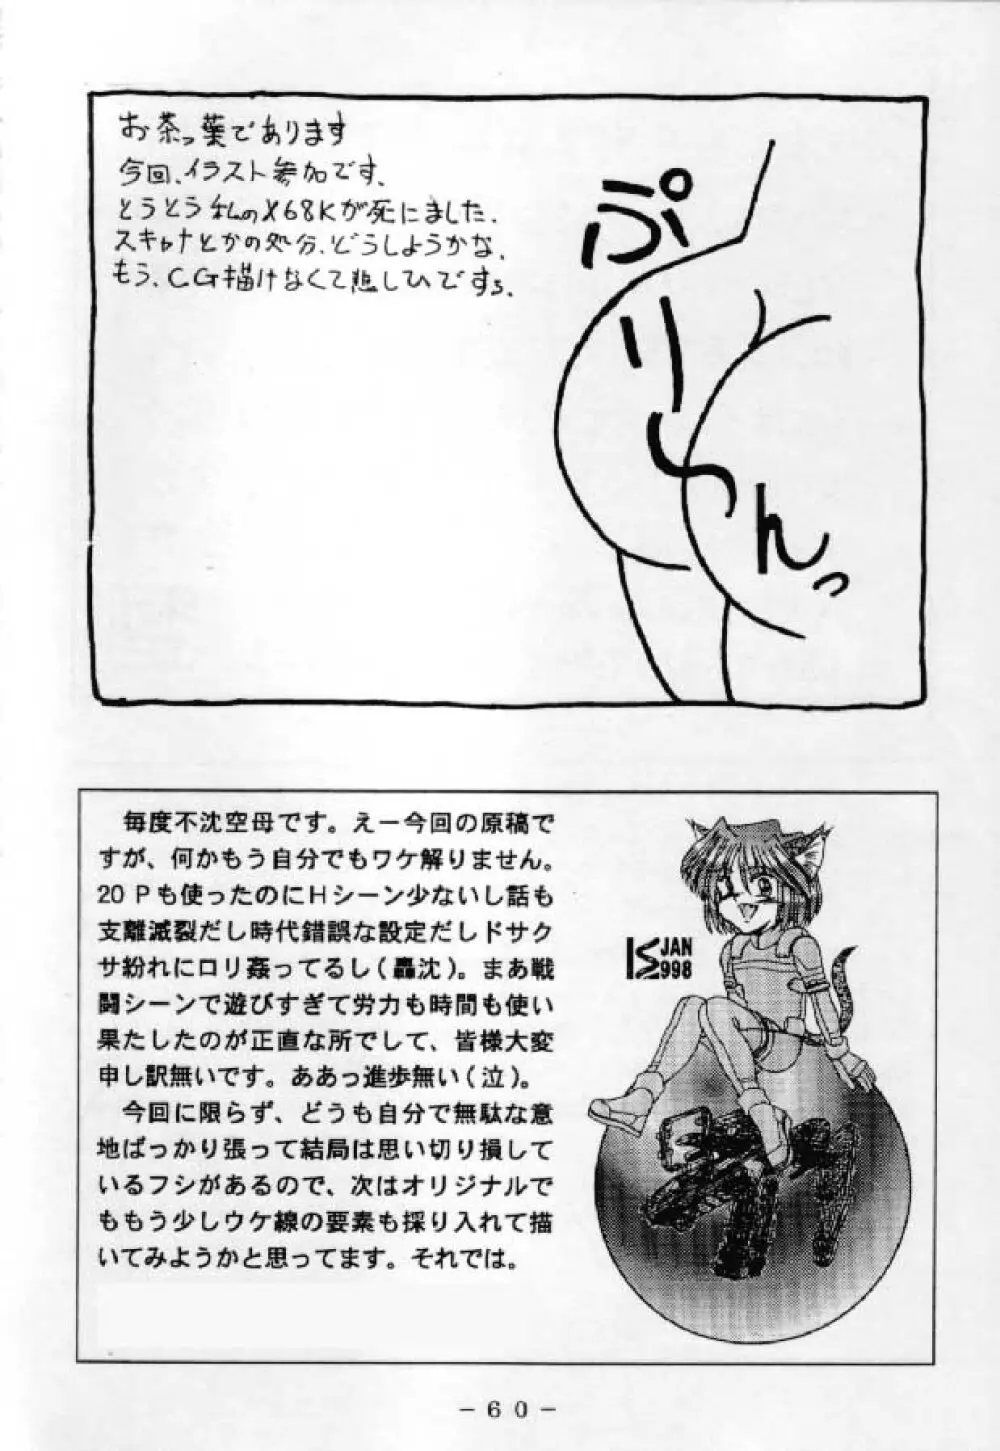 お茶っ葉であります
今回、イラスト参加です、
とうとう私のX68Kが死にました、
スキャナとかの処分、どうしようかな、
もう、CG描けなくて悲しひですぅ、
ぷりーんっ
毎度不沈空母です。えー今回の原稿で
すが、何かもう自分でもワケ解りません。
20Pも使ったのにHシーン少ないし話も
支離滅裂だし時代錯誤な設定だしドサク
サ紛れにロリ姦ってるし(轟沈)。まあ戦
闘シーンで遊びすぎて労力も時間も使い
果たしたのが正直な所でして、皆様大変
申し訳無いです。ああっ進歩無い(泣)。
今回に限らず、どうも自分で無駄な意
地ばっかり張って結局は思い切り損して
いるフシがあるので、次はオリジナルで
ももう少しウケ線の要素も採り入れて描
いてみようかと思ってます。それでは。
JAN
1998
－60－